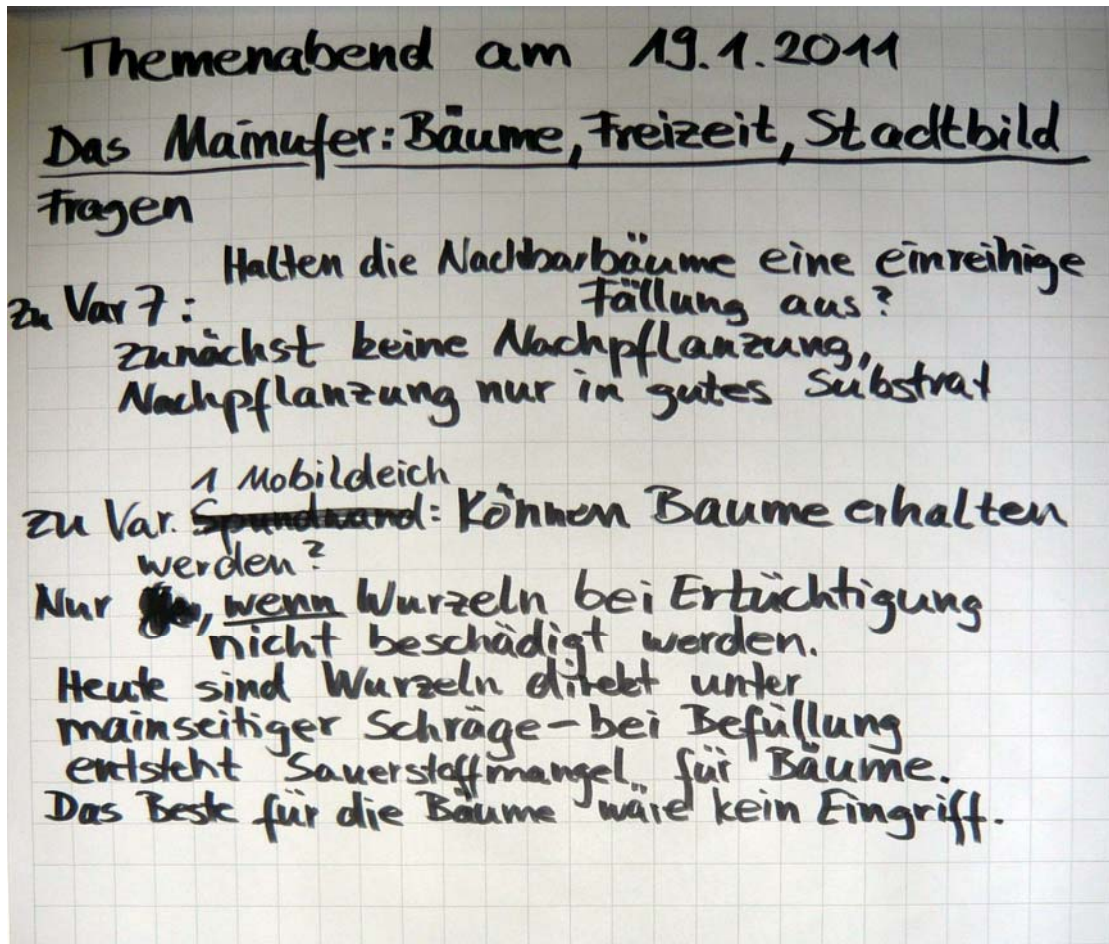 Themenabend am 19.1.2011
Das Mainufer: Bäume, Freizeit, Stadtbild
Fragen
Halten die Nachbarbäume eine einreihige
zu Var 7: Fällung aus?
zunächst keine Nachpflanzung,
Nachpflanzung nur in gutes Substrat
1 Mobildeich
zu Var. Spundwand: Können Baume erhalten
werden?
Nur, wenn Wurzeln bei Ertüchtigung
nicht beschädigt werden.
Heute sind Wurzeln direkt unter
mainseitiger Schräge – bei Befüllung
entsteht Sauerstoffmangel für Bäume.
Das Beste für die Bäume wäre kein Eingriff.